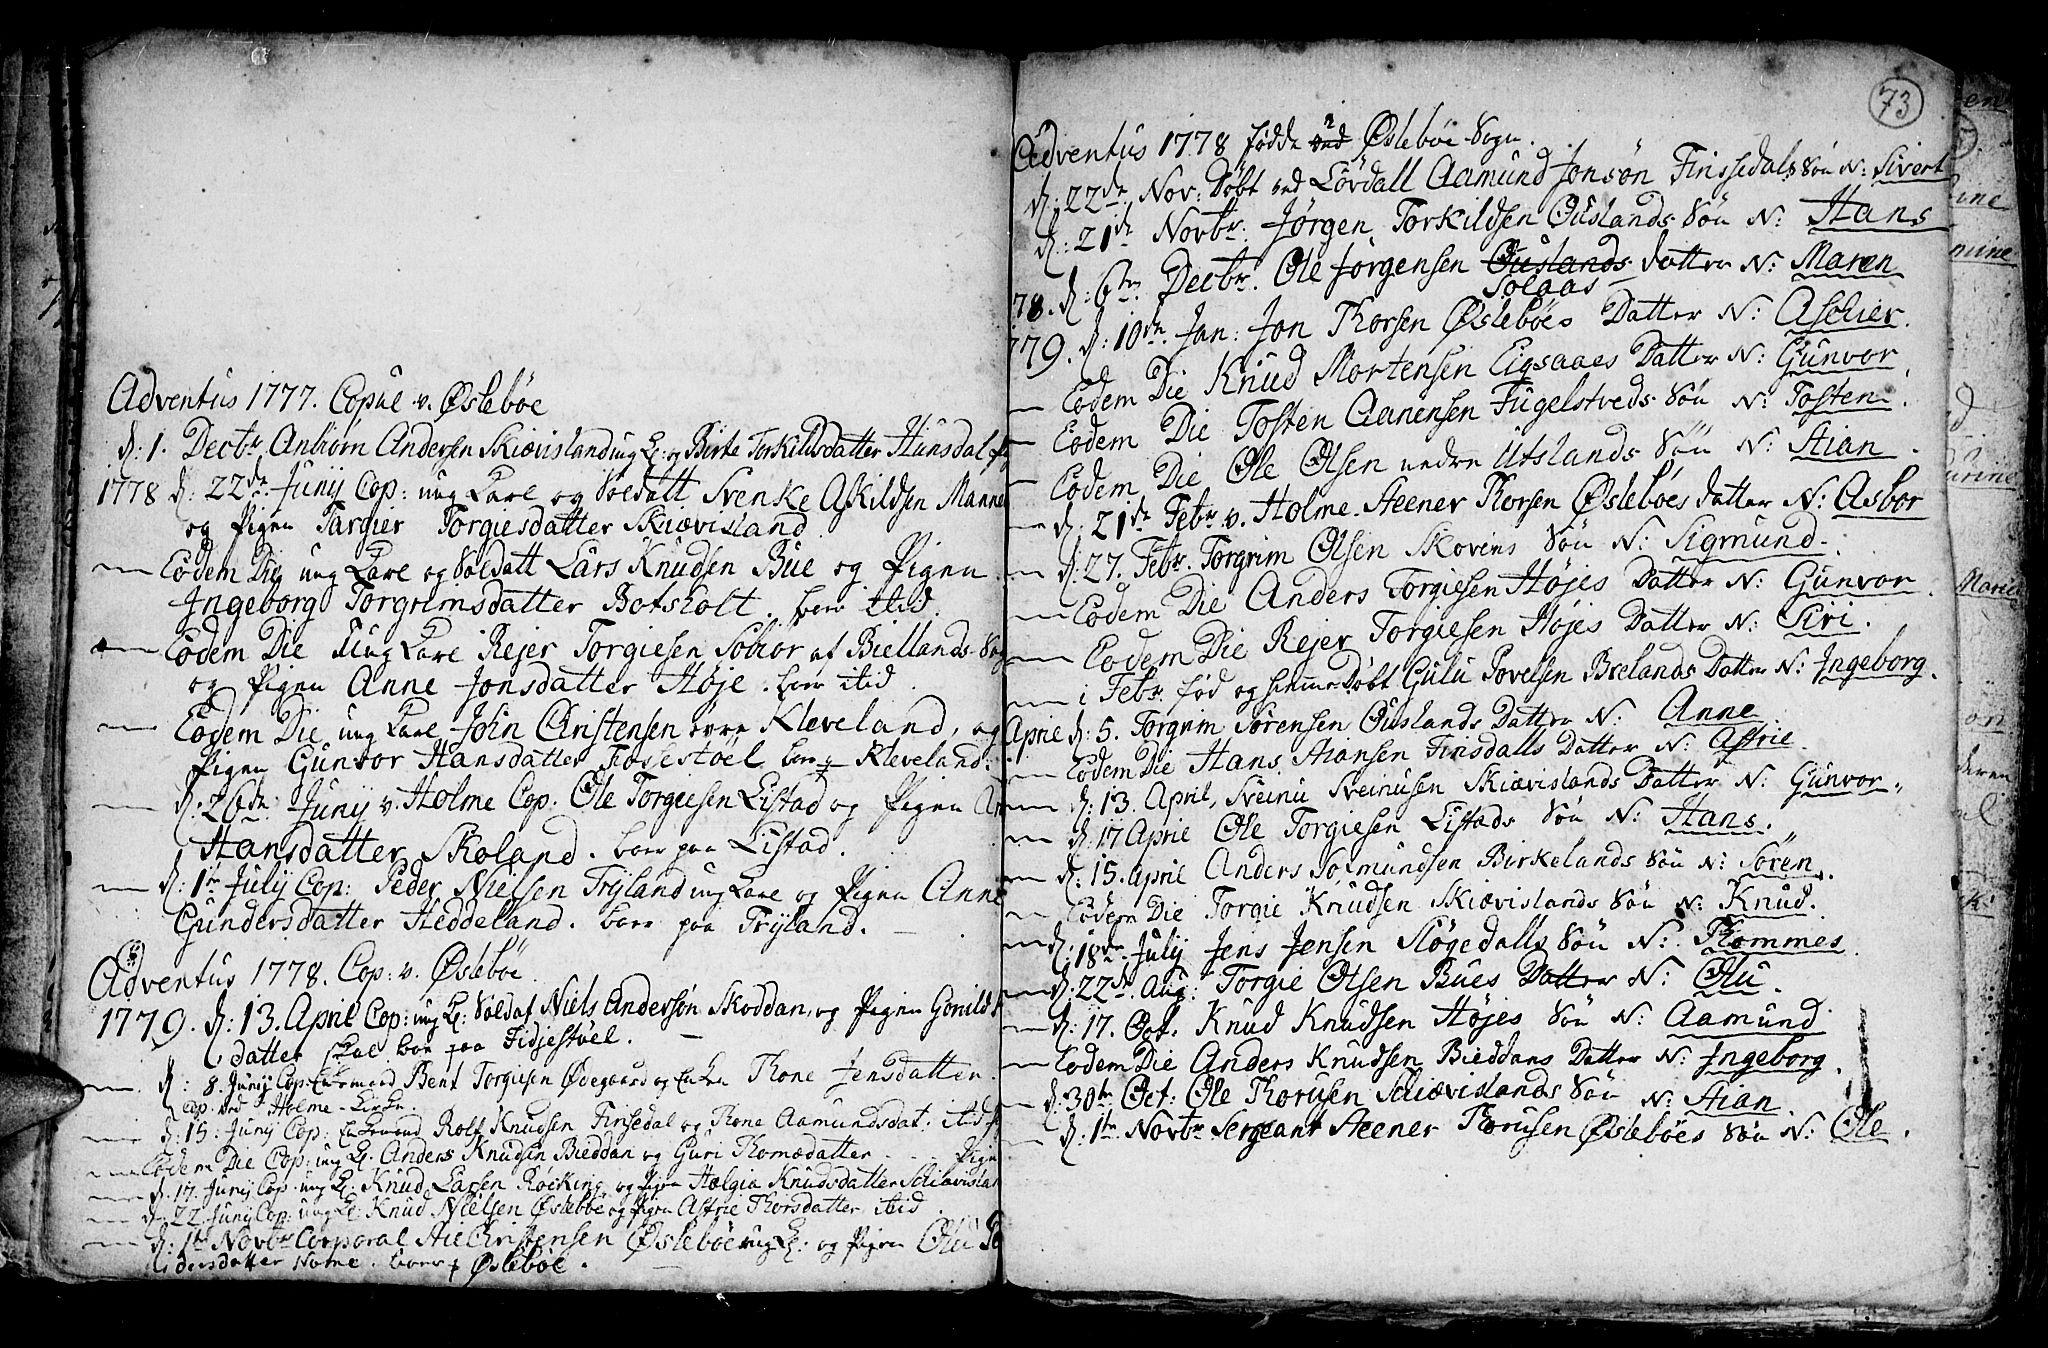 Adventus 1777. Copul v. Øslebøe
d: 1. Decbr Anbiørn Andersen Skiævisland ung K: og Birte Torkildsdatter Hunsdal
1778 d: 22de Junij Cop: ung Karl og Soldatt Svenke Askildsen Manne
og Pigen Targier Torgiesdatter Skiævisland
Eodem Die ung Karl og Soldatt Lars Knudsen Bue og Pigen
Ingeborg Torgrimsdatter Botsholt. boer ibid.
Eodem Die ung Karl Rejer Torgiesen Solior af Biellands Sog
og Pigen Anne Jonsdatter Høje. boer ibid.
Eodem Die ung Karl John Christensen øvre Kleveland, og
Pigen Gunvor Hansdatter Fosestøel boer p Kleveland.
d: 26de: Junij v. Holme Cop. Ole Torgiesen Listad og Pigen An
Hansdatter Skoland. boer paa Listad.
d: 1te July Cop: Peder Nielsen Tryland ung Karl og Pigen Anne
Gundersdatter Heddeland. boer paa Tryland.
Adventus 1778. Cop: v. Øslebøe
1779. d: 13. April Cop: ung K: Soldat Niels Andersøn Skoddan, og Pigen Gonild
datter skal boe paa Fidjestøel.
d: 8. Junij Cop: Enkemand Bent Torgiesen Ødegaard og Enken Thone Jensdatter
Cop. ved Holme-Kirke
d: 15. Junij Cop: Enkemand Rolf Knudsen Finsedal og Thone Aamundsdat. ibid
Eodem Die Cop: ung K. Anders Knudsen Bieddan og Guri Thomædatter - - Pigen
d. 17. Junij Cop. ung K: Knud Larsen Røcking og Pigen Hælgia Knudsdatter Schiævisland
d. 22. Junij Cop: ung K: Knud Nielsen Øslebøe og Pigen Astrie Thorsdatter ibid.
d: 1te Novbr Corporal Atie Christensen Øslebøe ung K: og Pigen Olu
dersdatter Home. boer p Øslebøe.
73
Adventus 1778 fødde i Øslebøe Sogn.
d: 22de Nov: Døbt ved Løvdall Aamund Jonsøn Finssedals Søn N: Sivert
d: 21de Novbr: Jørgen Torkildsen Ouslands Søn N: Hans
78. d: 6te Decbr. Ole Jørgensen Ouslands datter N: Maren
Solaas
779. d: 10de Jan: Jon Thorsen Øslebøes Datter N: Aschier.
Eodem Die Knud Mortensen Eigsaaes Datter N: Gunvor
Eodem Die Tosten Aanensen Fugelstveds Søn N: Tosten.
Eodem Die Ole Olsen nedre Utslands Søn N: Stian.
d. 21de Febr v. Holme. Steener Thorsen Øslebøes datter N: Asbor
d: 27. Febr. Torgrim Olsen Skovens Søn N: Sigmund.
Eodem Die Anders Torgiesen Højes Datter N: Gunvor.
Eodem Die Rejer Torgiesen Højes Datter N: Siri.
i Febr. fød og hiemmeDøbt Gulu Povelsen Brelands Datter N: Ingeborg.
April d: 5. Torgrim Sørensen Ouslands Datter N: Anne
Eodem Die Hans Stiansen Finsdalls Datter N: Astrie.
d: 13. April, Sveinu Sveinusen Skiævislands Datter N: Gunvor.
d: 17 April Ole Torgiesen Listads Søn N: Hans.
d: 15. april Anders Salmundsen Birkelands Søn N: Søren.
Eodem Die Torgie Knudsen Skiævislands Søn N: Knud.
d. 18de July Jens Jensen Sløgedalls Søn N: Thommes
d: 22de Aug: Torgie Olsen Bues Datter N: Olu.
d: 17. Oct. Knud Knudsen Højes Søn N: Aamund
Eodem Die Anders Knudsen Bieddans Datter N: Ingeborg.
d: 30te Oct: Ole Thorusen Schiævislands Søn N: Stian.
d: 1te Novbr Sergeant Steener Thorusen Øslebøes Søn N: Ole.